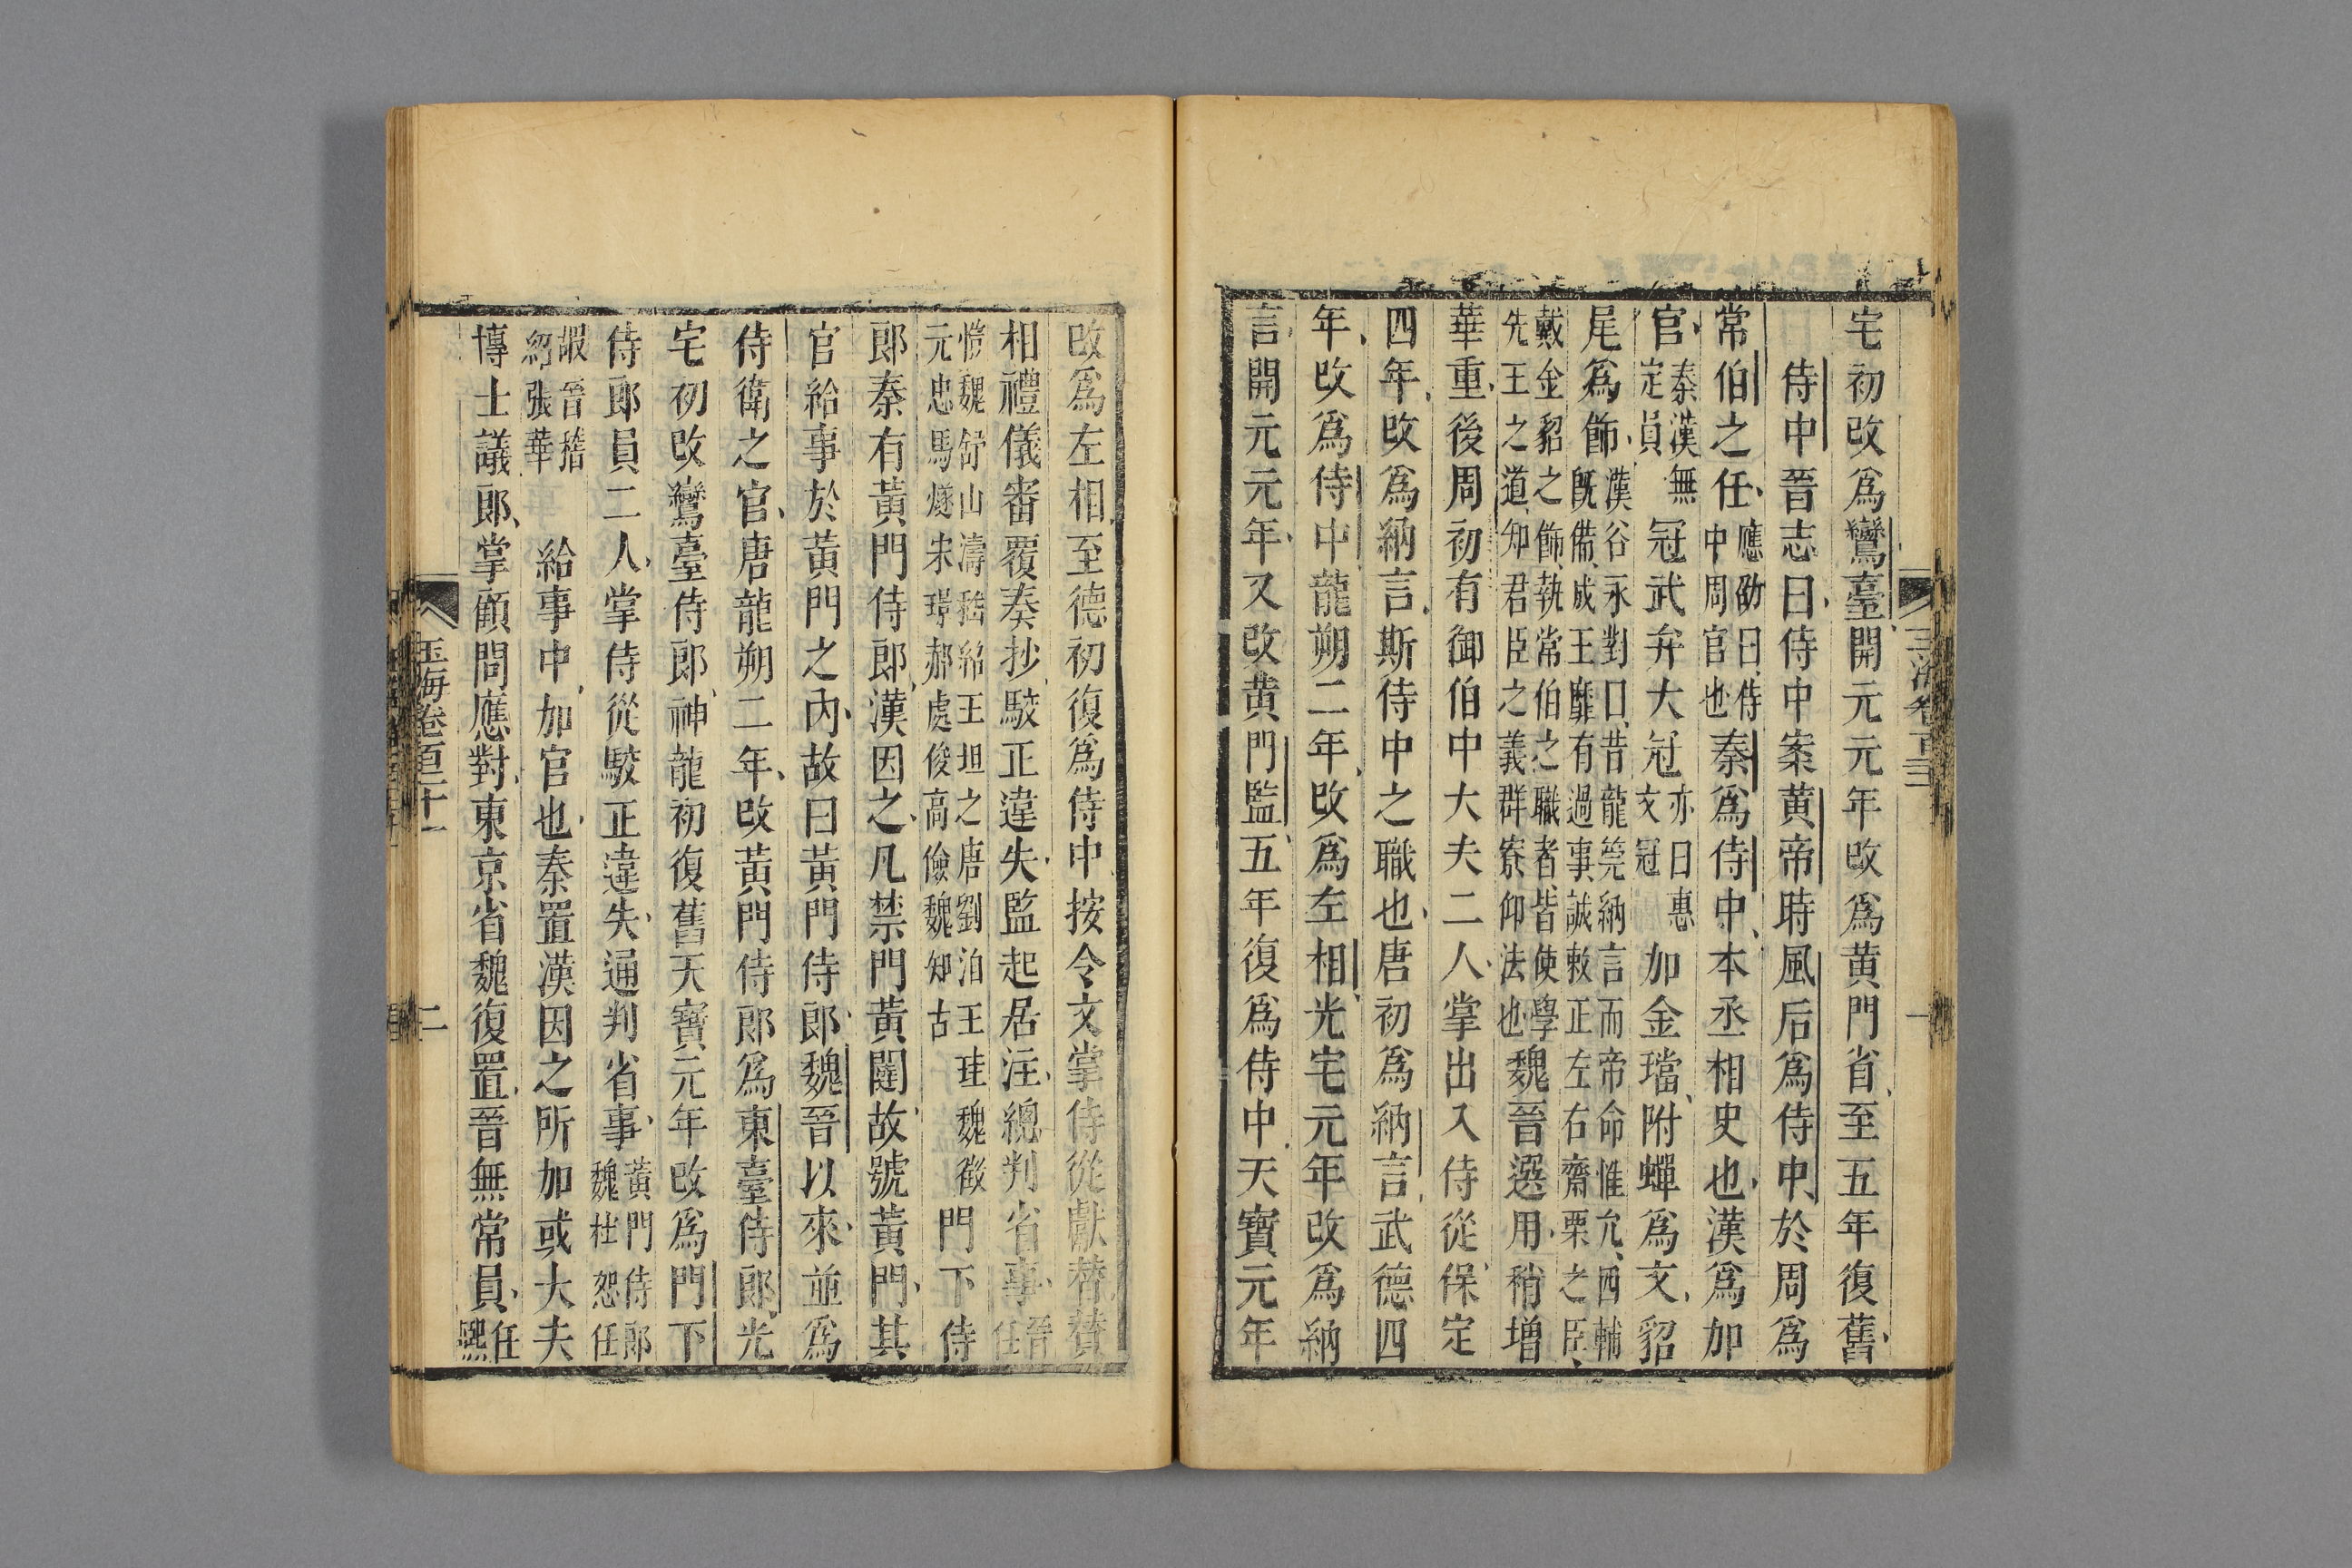 宅初改爲鸞臺開元元年改爲黄門省至五年復舊
侍中晉志曰侍中案黄帝時風后爲侍中於周爲
常伯之任應劭曰侍中周官也秦爲侍中本丞相史也漢爲加
官秦漢無定員冠武弁大冠亦曰惠文冠加金璫附蟬爲文貂
尾爲飾漢谷永對曰昔龍筦納言而帝命惟允四輔既備成王靡有過事誠敕正左右齋栗之臣
戴金貂之飾執常伯之職者皆使學先王之道知君臣之義群寮仰法也魏晉選用稍增
華重後周初有御伯中大夫二人掌出入侍從保定
四年改爲納言斯侍中之職也唐初爲納言武德四
年改爲侍中龍朔二年改爲左相光宅元年改爲納
言開元元年又改黄門監五年復爲侍中天寶元年
改爲左相至德初復爲侍中按令文掌侍從獻替贊
相禮儀審覆奏抄駮正違失監起居注總判省事晉任
愷魏舒山濤嵇紹王坦之唐劉洎王珪魏徵元忠馬燧宋璟郝處俊高儉魏知古門下侍
郎秦有黄門侍郎漢因之凡禁門黄闥故號黄門其
官給事於黄門之內故曰黄門侍郎魏晉以來並爲
侍衛之官唐龍朔二年改黄門侍郎爲東臺侍郎光
宅初改鸞臺侍郎神龍初復舊天寶元年改爲門下
侍郎員二人掌侍從駮正違失通判省事黄門侍郎魏杜恕任
嘏晉嵇紹張華給事中加官也秦置漢因之所加或大夫
博士議郎掌顧問應對東京省魏復置晉無常員任熙
玉海卷百二十一
二
玉海卷百二十一
一